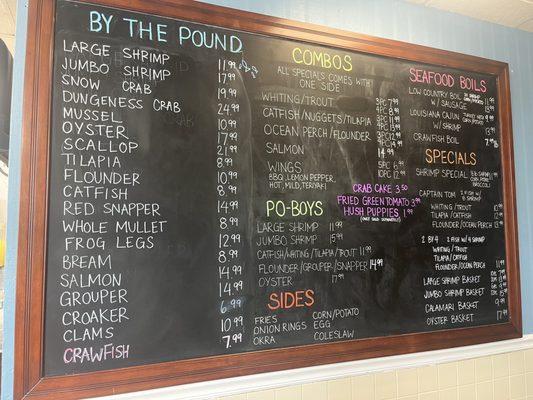 BY THE POUND
LARGE SHRIMP 11.99
JUMBO SHRIMP 17.99
SNOW CRAB 19.99
DUNGENESS CRAB 24.99
MUSSEL 8.99
OYSTER 10.99
SCALLOP 17.99
TILAPIA 8.99
FLOUNDER 10.99
CATFISH 8.99
RED SNAPPER 14.99
WHOLE MULLET 8.99
FROG LEGS 12.99
BREAM 8.99
SALMON 14.99
GROUPER 14.99
CROAKER 6.99
CLAMS 10.99
CRAWFISH 7.99
COMBOS
ALL SPECIALS COME WITH
ONE SIDE
WHITING/TROUT
CATFISH/NUGGETS/TILAPIA
OCEAN PERCH/FLOUNDER
SALMON 14.99
WINGS 5PC 6.99
BBQ, LEMON PEPPER, 10PC 12.99
HOT, MILD, TERIYAKI
CRAB CAKE 3.50
FRIED GREEN TOMATO 3.99
HUSH PUPPIES 1.99
PO-BOYS
LARGE SHRIMP 11.99
JUMBO SHRIMP 15.99
CATFISH/WHITING/TILAPIA/TROUT 11.99
FLOUNDER/GROUPER/SNAPPER 14.99
OYSTER 17.99
SIDES
FRIES CORN/POTATO
ONION RINGS EGG
OKRA COLESLAW
SEAFOOD BOILS
LOW COUNTRY BOIL 11.99
W/ SAUSAGE
LOUISIANA CAJUN
W/ SHRIMP 13.99
CRAWFISH BOIL 7.99
SPECIALS
SHRIMP SPECIAL
CAPTAIN TOM
WHITING/TROUT
TILAPIA/CATFISH
FLOUNDER/OCEAN PERCH
2 BY 4 2 FISH W/ 4 SHRIMP
WHITING/TROUT
TILAPIA/CATFISH
FLOUNDER/OCEAN PERCH
LARGE SHRIMP BASKET
JUMBO SHRIMP BASKET
CALAMARI BASKET 9.99
OYSTER BASKET 17.99